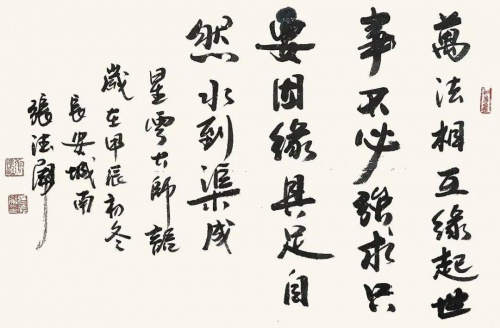 萬法相互緣起世
事不必強求只
要因緣具足自
然水到渠成
星雲大師語
歲在甲辰初冬
長安城南
張